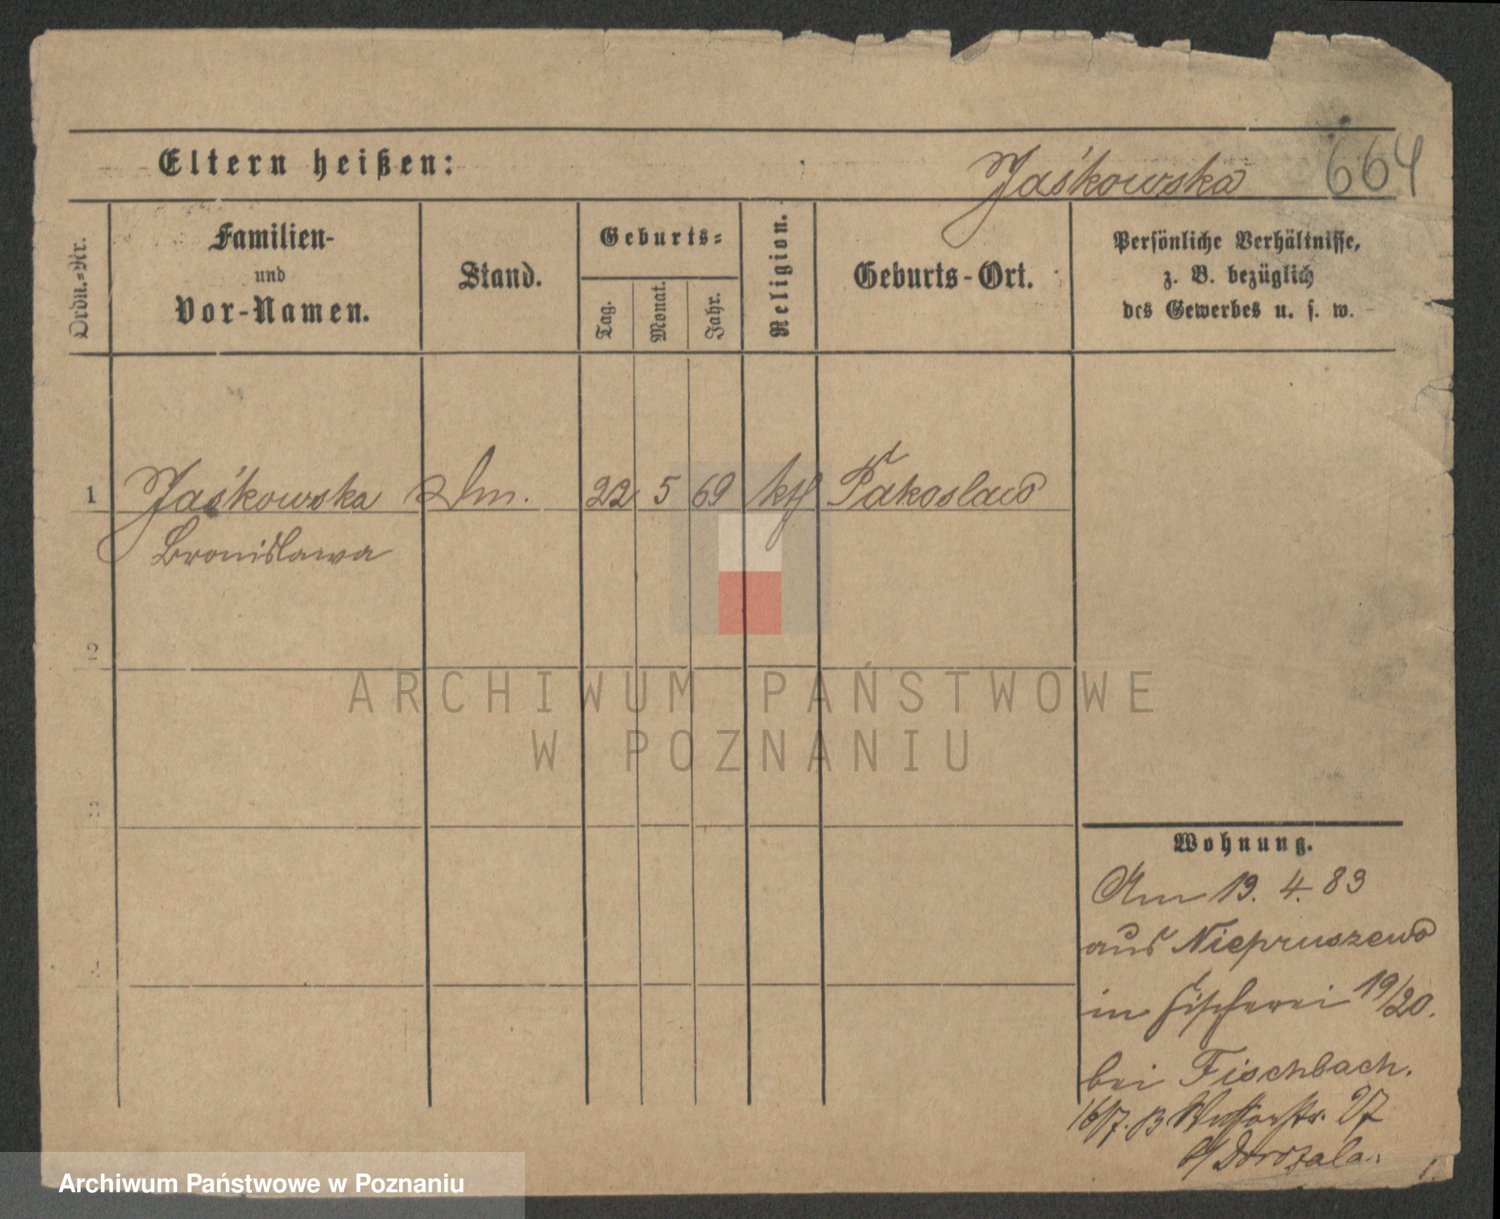 Eltern heißen:
Jaśkowska 664
Ordn.-Nr.
Familien-
und
Vor-Namen.
Stand.
Geburts-
Tag.
Monat.
Jahr.
Religion.
Geburts-Ort.
Persönliche Verhältnisse,
z. B. bezüglich
des Gewerbes u. s. w.
1 Jaśkowska 22 5 69 kth Pakoslaw
Bronislawa
2
3
4
ARCHIWUM PAŃSTWOWE
W POZNANIU
Wohnung.
Am 13. 4. 83
aus Niepruszewo
in Fischerei 19/20.
bei Fischbach.
16/7. 83 Wasserstr. 27
b/ Dorozala.
Archiwum Państwowe w Poznaniu